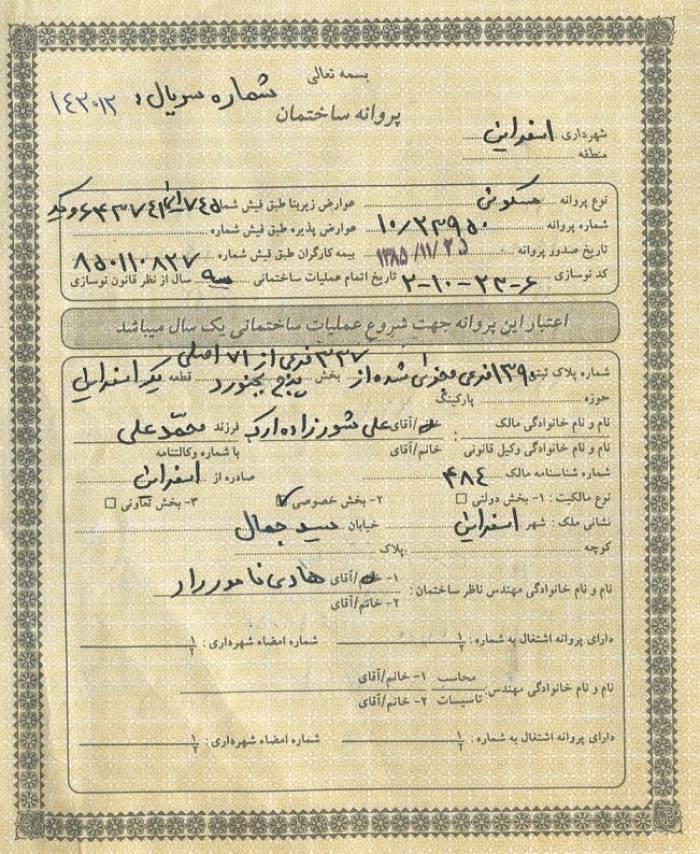 بسمه تعالی
شماره سریال: ۱۴۲۰۱۲
پروانه ساختمان
شهرداری اسفراین
منطقه
نوع پروانه مسکونی عوارض زیربنا طبق فیش شماره
شماره پروانه ۱۰/۲۳۹۵۰ عوارض پذیره طبق فیش شماره
تاریخ صدور پروانه ۱۳۸۵/۱۱/۲۵ بیمه کارگران طبق فیش شماره ۸۵۰۱۱۰۸۲۷
کد نوسازی ۲-۱۰-۲۳-۶ تاریخ اتمام عملیات ساختمانی سه سال از نظر قانون نوسازی
اعتبار این پروانه جهت شروع عملیات ساختمانی یک سال میباشد
شماره پلاک ثبتی ۱۳۹۰ فرعی مجزی شده از ۳۳۷ فرعی از ۷۱ اصلی بخش پنج بجنورد قطعه یک اسفراین
حوزه پارکینگ
نام و نام خانوادگی مالک : خانم/آقای علی شورزاده ارک فرزند محمدعلی
نام و نام خانوادگی وکیل قانونی خانم/آقای با شماره وکالتنامه
شماره شناسنامه مالک ۴۸۴ صادره از اسفراین
نوع مالکیت : ۱- بخش دولتی ☐ ۲- بخش خصوصی ☑ ۳- بخش تعاونی ☐
نشانی ملک : شهر اسفراین خیابان سید جمال
کوچه پلاک
نام و نام خانوادگی مهندس ناظر ساختمان: ۱- خانم/آقای هادی نامور راد
۲- خانم/آقای
دارای پروانه اشتغال به شماره : ۱/۲ شماره امضاء شهرداری : ۱/۲
نام و نام خانوادگی مهندس: محاسب ۱- خانم/آقای
تاسیسات ۲- خانم/آقای
دارای پروانه اشتغال به شماره : ۱/۲ شماره امضاء شهرداری : ۱/۲